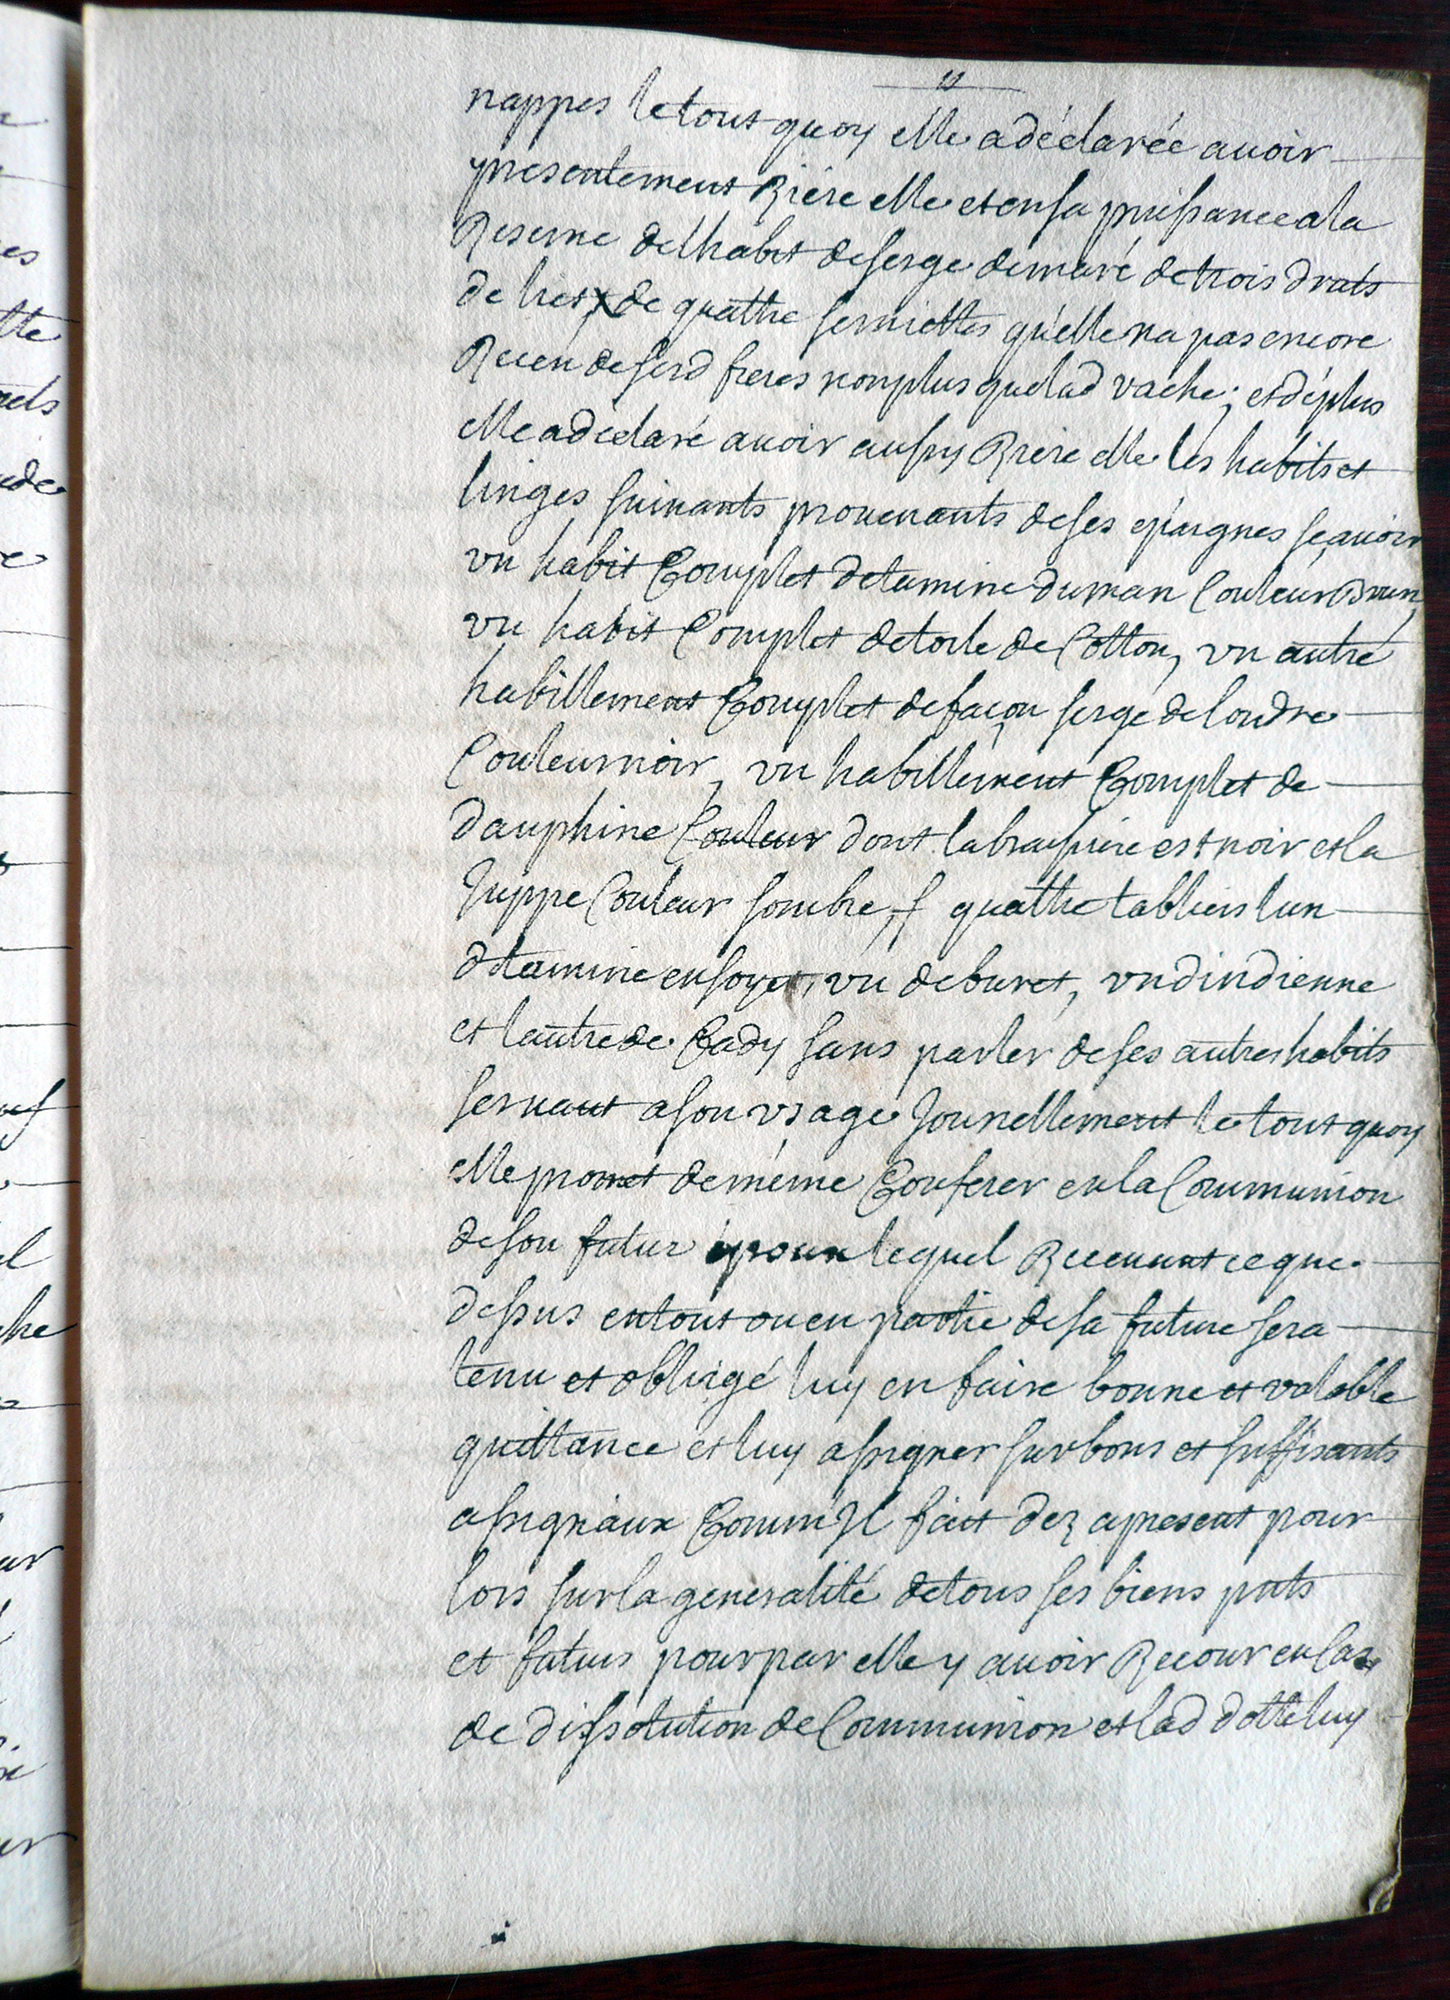 11
nappes le tout quoy elle a déclarée avoir
presentement Riére elle et en sa puissance a la
Reserve de lhabit de serge demaré de trois drats
de liet x de quattre serviettes quelle na pas encore
Receu de sesd freres non plus que lad vache ; et déplus
elle a déclaré avoir aussy Riere elle les habits et
linges suivants provenants de ses epargnes scavoir
vn habit Complet detamine duman Couleur Brun,
vn habit Complet de toile de Cotton, vn autre
habillement Complet de facon serge de londre
Couleur noir, vn habillement Complet de
dauphine Couleur dont la brassiere est noir et la
Juppe Couleur sombre, quattre tabliers lun
detamine en soye, vn de buret, vn dindienne
et lautre de Cady sans parler de ses autres habits
servant a son vsage Journellement le tout quoy
elle promet de méme Conferer en la Communion
de son futur époux lequel Recevant ce que
dessus en tout ou en partie de sa future sera
tenu et obligé luy en faire bonne et valable
quittance et luy assigner sur bons et suffisants
assignaux Comm'Il fait dez apresent pour
lors sur la generalité de tous ses biens pnts
et futurs pour par elle y avoir Recour en Cas
de dissolution de Communion et lad dotte luy